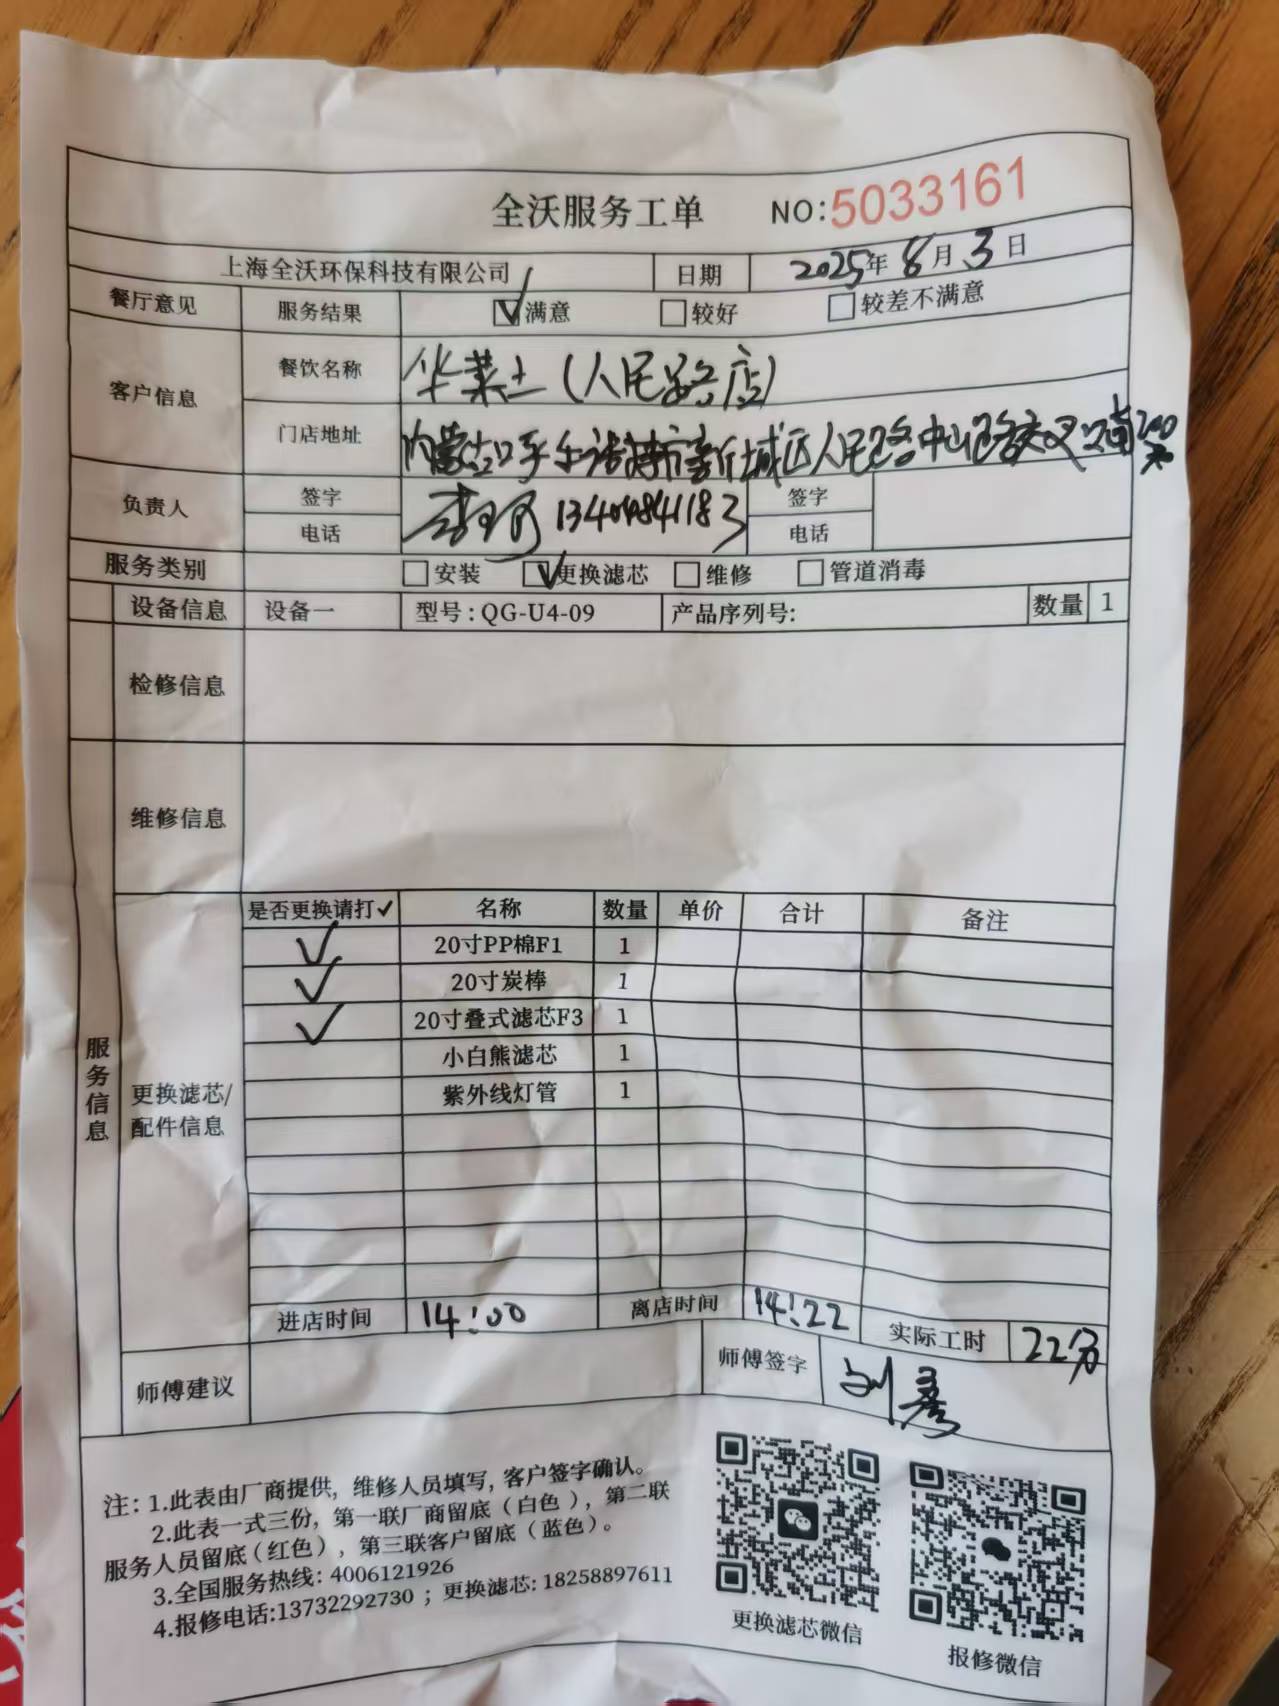 全沃服务工单 NO:5033161
上海全沃环保科技有限公司 日期 2025年8月3日
餐厅意见 服务结果 ☑满意 □较好 □较差不满意
客户信息 餐饮名称 华莱士(人民路店)
门店地址 内蒙古呼和浩特市新城区人民路中山路交叉口南200米
负责人 签字 签字
电话 13404841183 电话
服务类别 □安装 ☑更换滤芯 □维修 □管道消毒
设备信息 设备一 型号:QG-U4-09 产品序列号: 数量 1
检修信息
维修信息
服务信息
更换滤芯/
配件信息
是否更换请打✓ 名称 数量 单价 合计 备注
✓ 20寸PP棉F1 1
✓ 20寸炭棒 1
✓ 20寸叠式滤芯F3 1
小白熊滤芯 1
紫外线灯管 1
进店时间 14:00 离店时间 14:22 实际工时 22分
师傅建议 师傅签字 刘彦
注:1.此表由厂商提供,维修人员填写,客户签字确认。
2.此表一式三份,第一联厂商留底(白色),第二联
服务人员留底(红色),第三联客户留底(蓝色)。
3.全国服务热线:4006121926
4.报修电话:13732292730;更换滤芯:18258897611
更换滤芯微信
报修微信